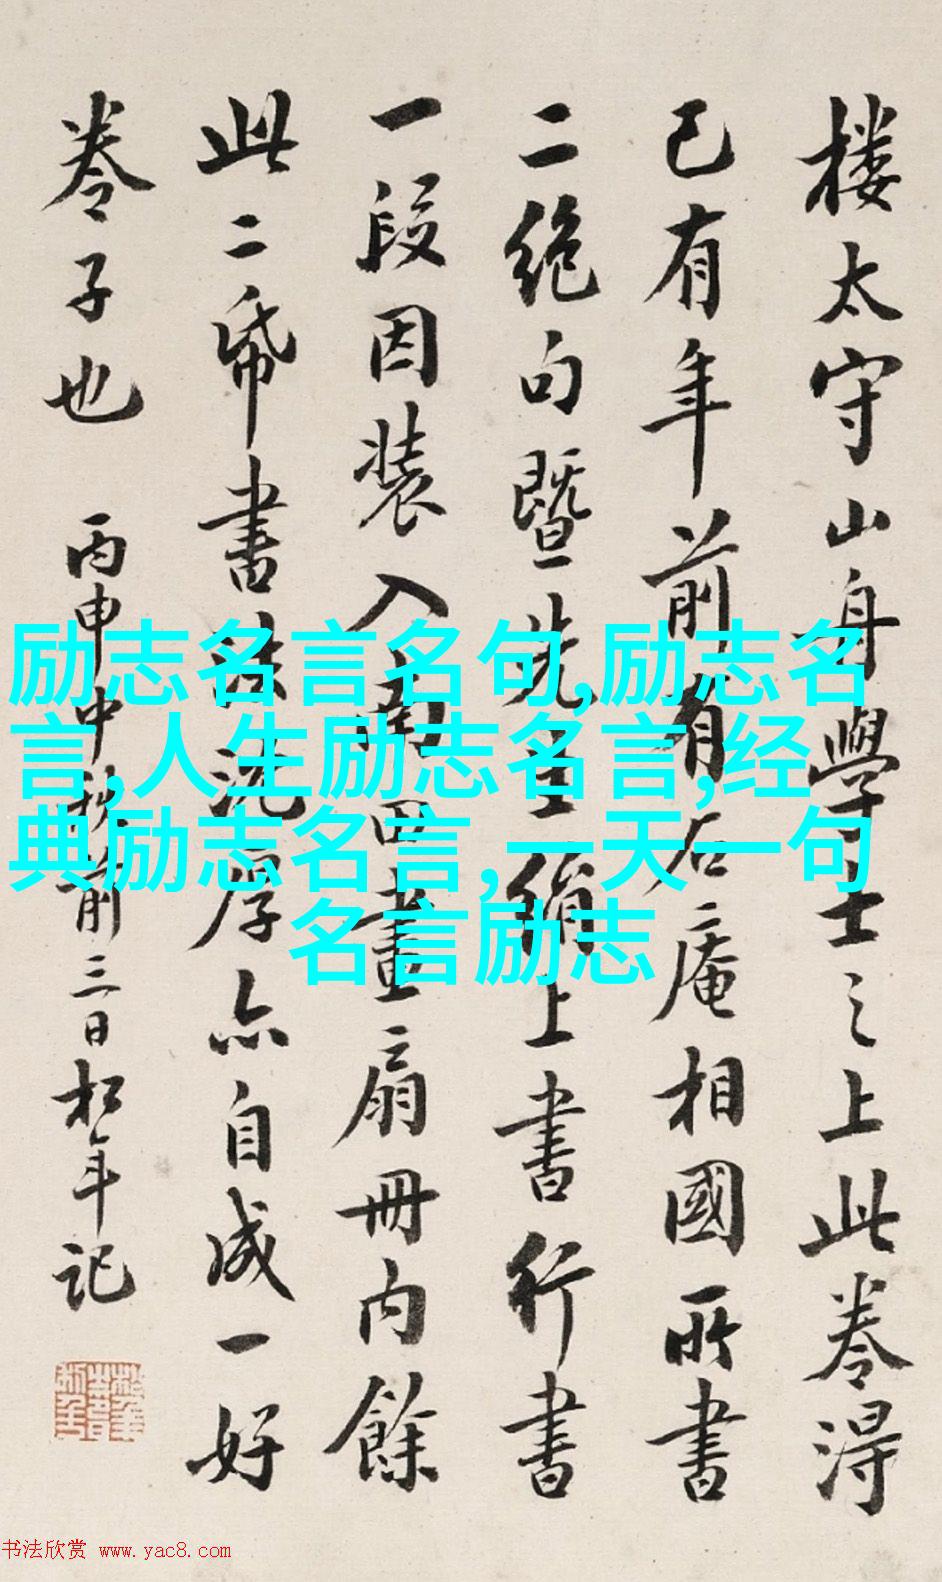 楼太守山舟學士之上此卷淂
已有年前有石庵相國所書
二絶句暨先生絹上書行書
一段因装入南田畫扇冊内餘
此二帋書法沉厚亦自成一好
卷子也 丙申中秋前三日松年記
励志名言名句,励志名
言,人生励志名言,经
典励志名言,一天一句
名言励志
书法欣赏 www.yac8.com